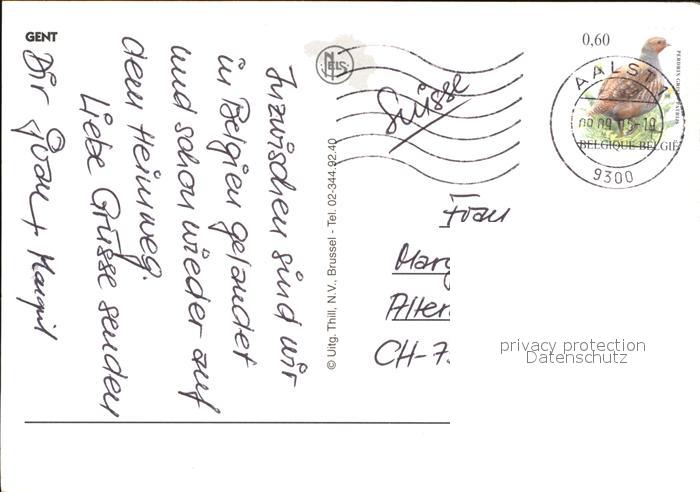 GENT
Inzwischen sind wir
in Belgien gelandet
und schon wieder auf
dem Heimweg.
Liebe Grüsse senden
Dir
NELS
© Uitg. Thill, N.V., Brussel - Tel. 02-344.92.40
Suisse
0,60
PERDRIX GRISE PATRIJS
BELGIQUE-BELGIË
AALST 1
9300
Frau
Marg
Alten
CH-7
privacy protection
Datenschutz